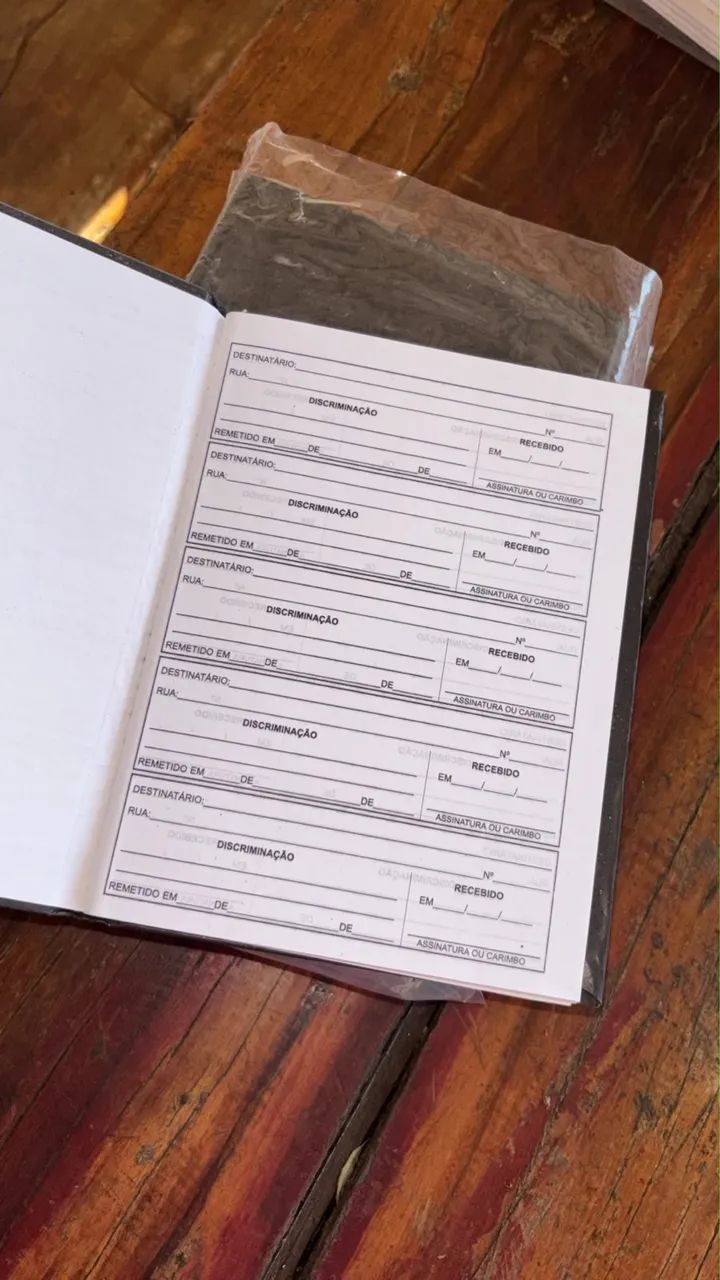 DESTINATÁRIO:
RUA: Nº
DISCRIMINAÇÃO RECEBIDO
EM / /
REMETIDO EM DE DE
ASSINATURA OU CARIMBO
DESTINATÁRIO:
RUA: Nº
DISCRIMINAÇÃO RECEBIDO
EM / /
REMETIDO EM DE DE
ASSINATURA OU CARIMBO
DESTINATÁRIO:
RUA: Nº
DISCRIMINAÇÃO RECEBIDO
EM / /
REMETIDO EM DE DE
ASSINATURA OU CARIMBO
DESTINATÁRIO:
RUA: Nº
DISCRIMINAÇÃO RECEBIDO
EM / /
REMETIDO EM DE DE
ASSINATURA OU CARIMBO
DESTINATÁRIO:
RUA: Nº
DISCRIMINAÇÃO RECEBIDO
EM / /
REMETIDO EM DE DE
ASSINATURA OU CARIMBO